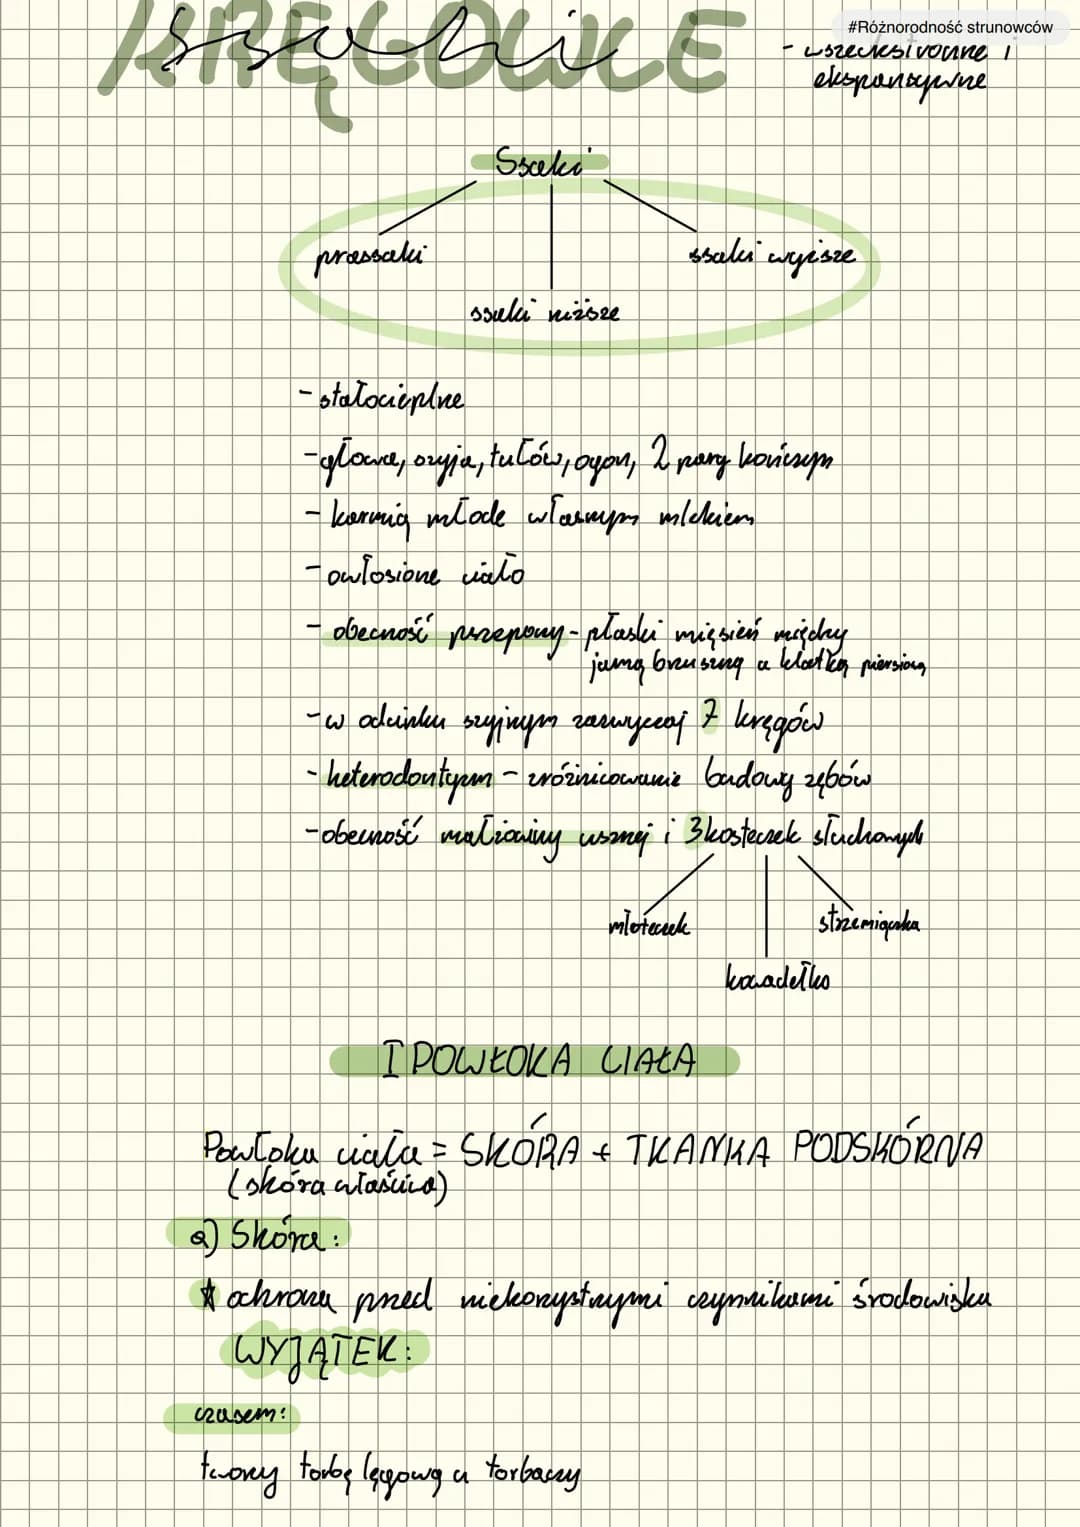 #Różnorodność strunowców
KRĘGOWCE
ssaki
- wszechstronne i
ekspansywne
Ssaki
prassaki
ssaki wyższe
ssaki niższe
- stałocieplne
- głowa, szyja, tułów, ogon, 2 pary kończyn
- karmią młode własnym mlekiem
- owłosione ciało
- obecność przepony - płaski mięsień między
jamą brzuszną a klatką piersiową
- w odcinku szyjnym zazwyczaj 7 kręgów
- heterodontyzm - zróżnicowanie budowy zębów
- obecność małżowiny usznej i 3 kosteczek słuchowych
młoteczek
strzemiączka
kowadełko
I POWŁOKA CIAŁA
Powłoka ciała = SKÓRA + TKANKA PODSKÓRNA
(skóra właściwa)
a) Skóra:
* ochrona przed niekorzystnymi czynnikami środowiska
WYJĄTEK:
czasem:
tworzy torbę lęgową u torbaczy